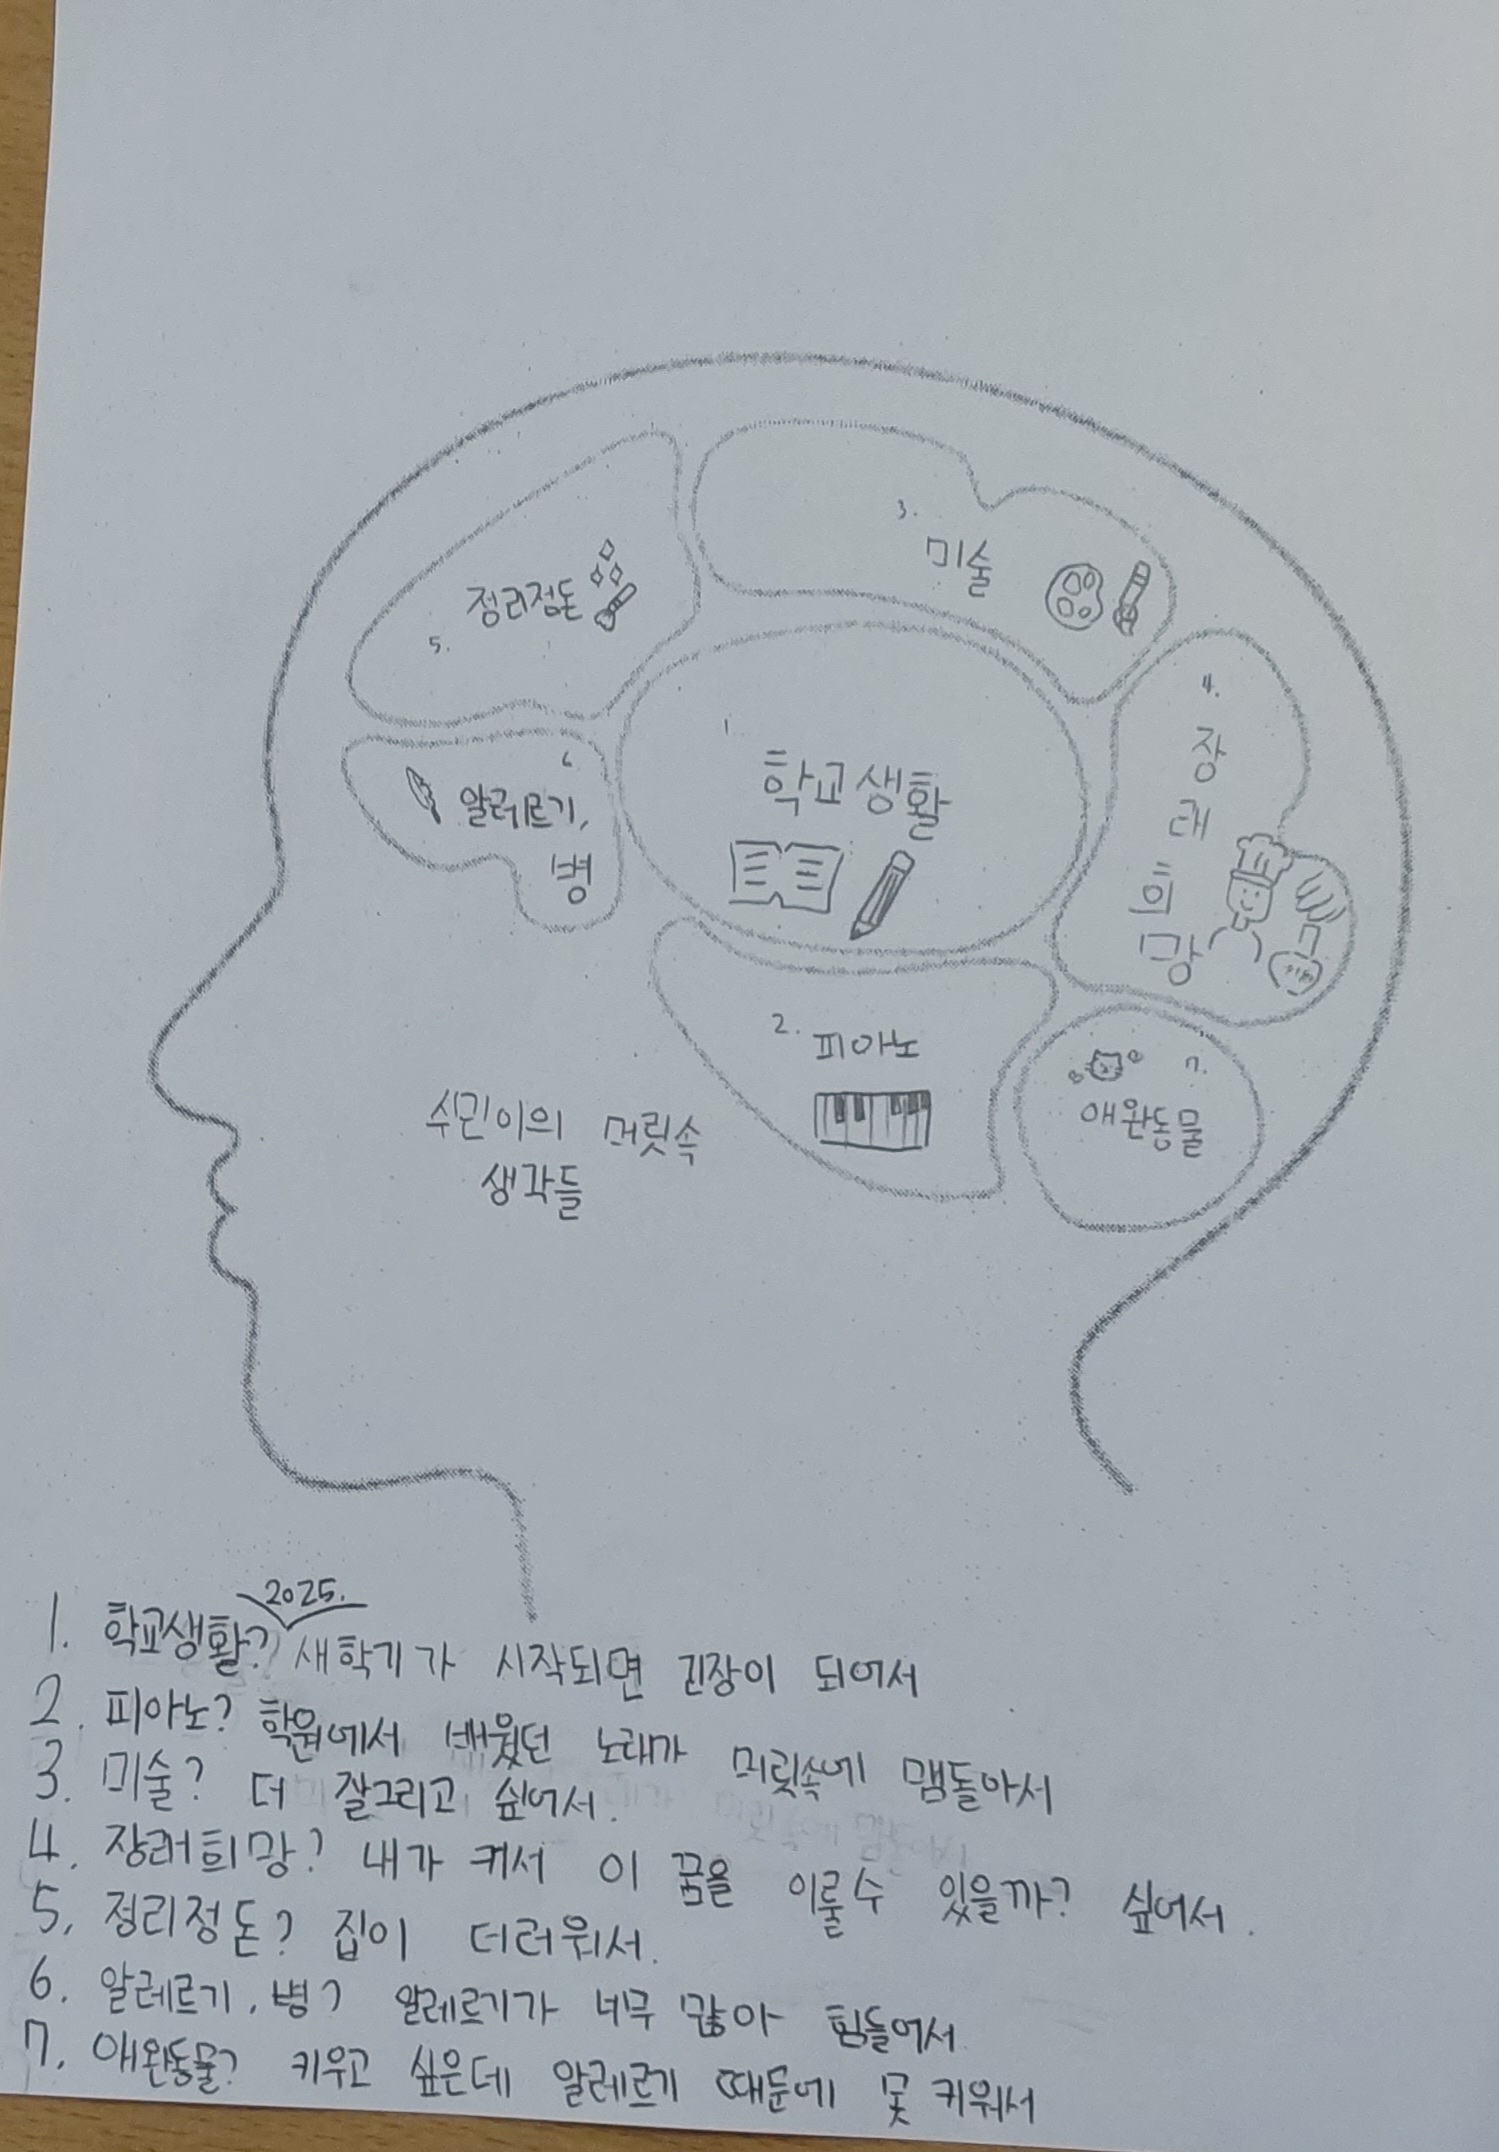 3.
미술
5. 정리정돈
4.
장
래
희
망
1
학교생활
6
알레르기,
병
2. 피아노
7.
애완동물
수민이의 머릿속
생각들
2025.
1. 학교생활? 새학기가 시작되면 긴장이 되어서
2. 피아노? 학원에서 배웠던 노래가 머릿속에 맴돌아서
3. 미술? 더 잘그리고 싶어서.
4. 장래희망? 내가 커서 이 꿈을 이룰수 있을까? 싶어서.
5. 정리정돈? 집이 더러워서.
6. 알레르기, 병? 알레르기가 너무 많아 힘들어서
7. 애완동물? 키우고 싶은데 알레르기 때문에 못 키워서